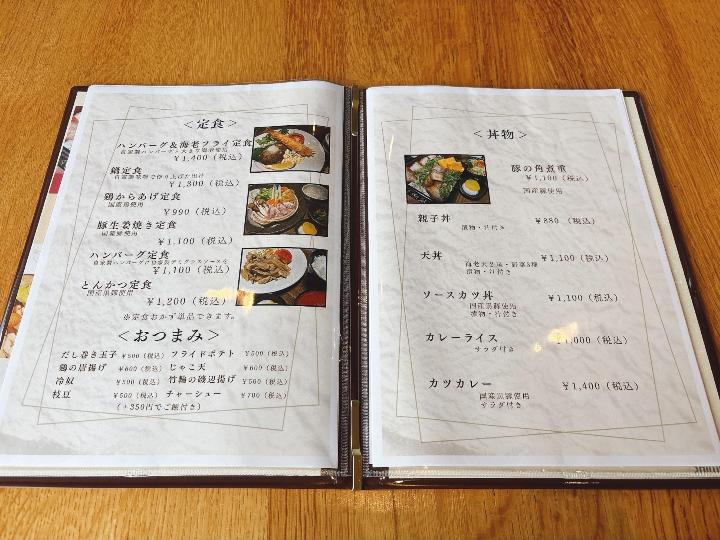 ＜定食＞
ハンバーグ＆海老フライ定食
￥1,400（税込）
鍋定食
￥1,300（税込）
鶏からあげ定食
国産鶏使用
￥990（税込）
豚生姜焼き定食
国産豚使用
￥1,100（税込）
ハンバーグ定食
￥1,100（税込）
とんかつ定食
国産黒豚使用
￥1,200（税込）
※定食おかず単品できます。
＜おつまみ＞
だし巻き玉子 ￥500（税込） フライドポテト ￥500（税込）
鶏の唐揚げ ￥600（税込） じゃこ天 ￥600（税込）
冷奴 ￥300（税込） 竹輪の磯辺揚げ ￥500（税込）
枝豆 ￥500（税込） チャーシュー ￥700（税込）
（+350円でご飯付き）
＜丼物＞
豚の角煮重
￥1,100（税込）
国産豚使用
親子丼 ￥880（税込）
漬物・汁付き
天丼 ￥1,100（税込）
海老天2尾・野菜3種
漬物・汁付き
ソースカツ丼 ￥1,100（税込）
国産黒豚使用
漬物・汁付き
カレーライス ￥1,000（税込）
サラダ付き
カツカレー ￥1,400（税込）
国産黒豚使用
サラダ付き